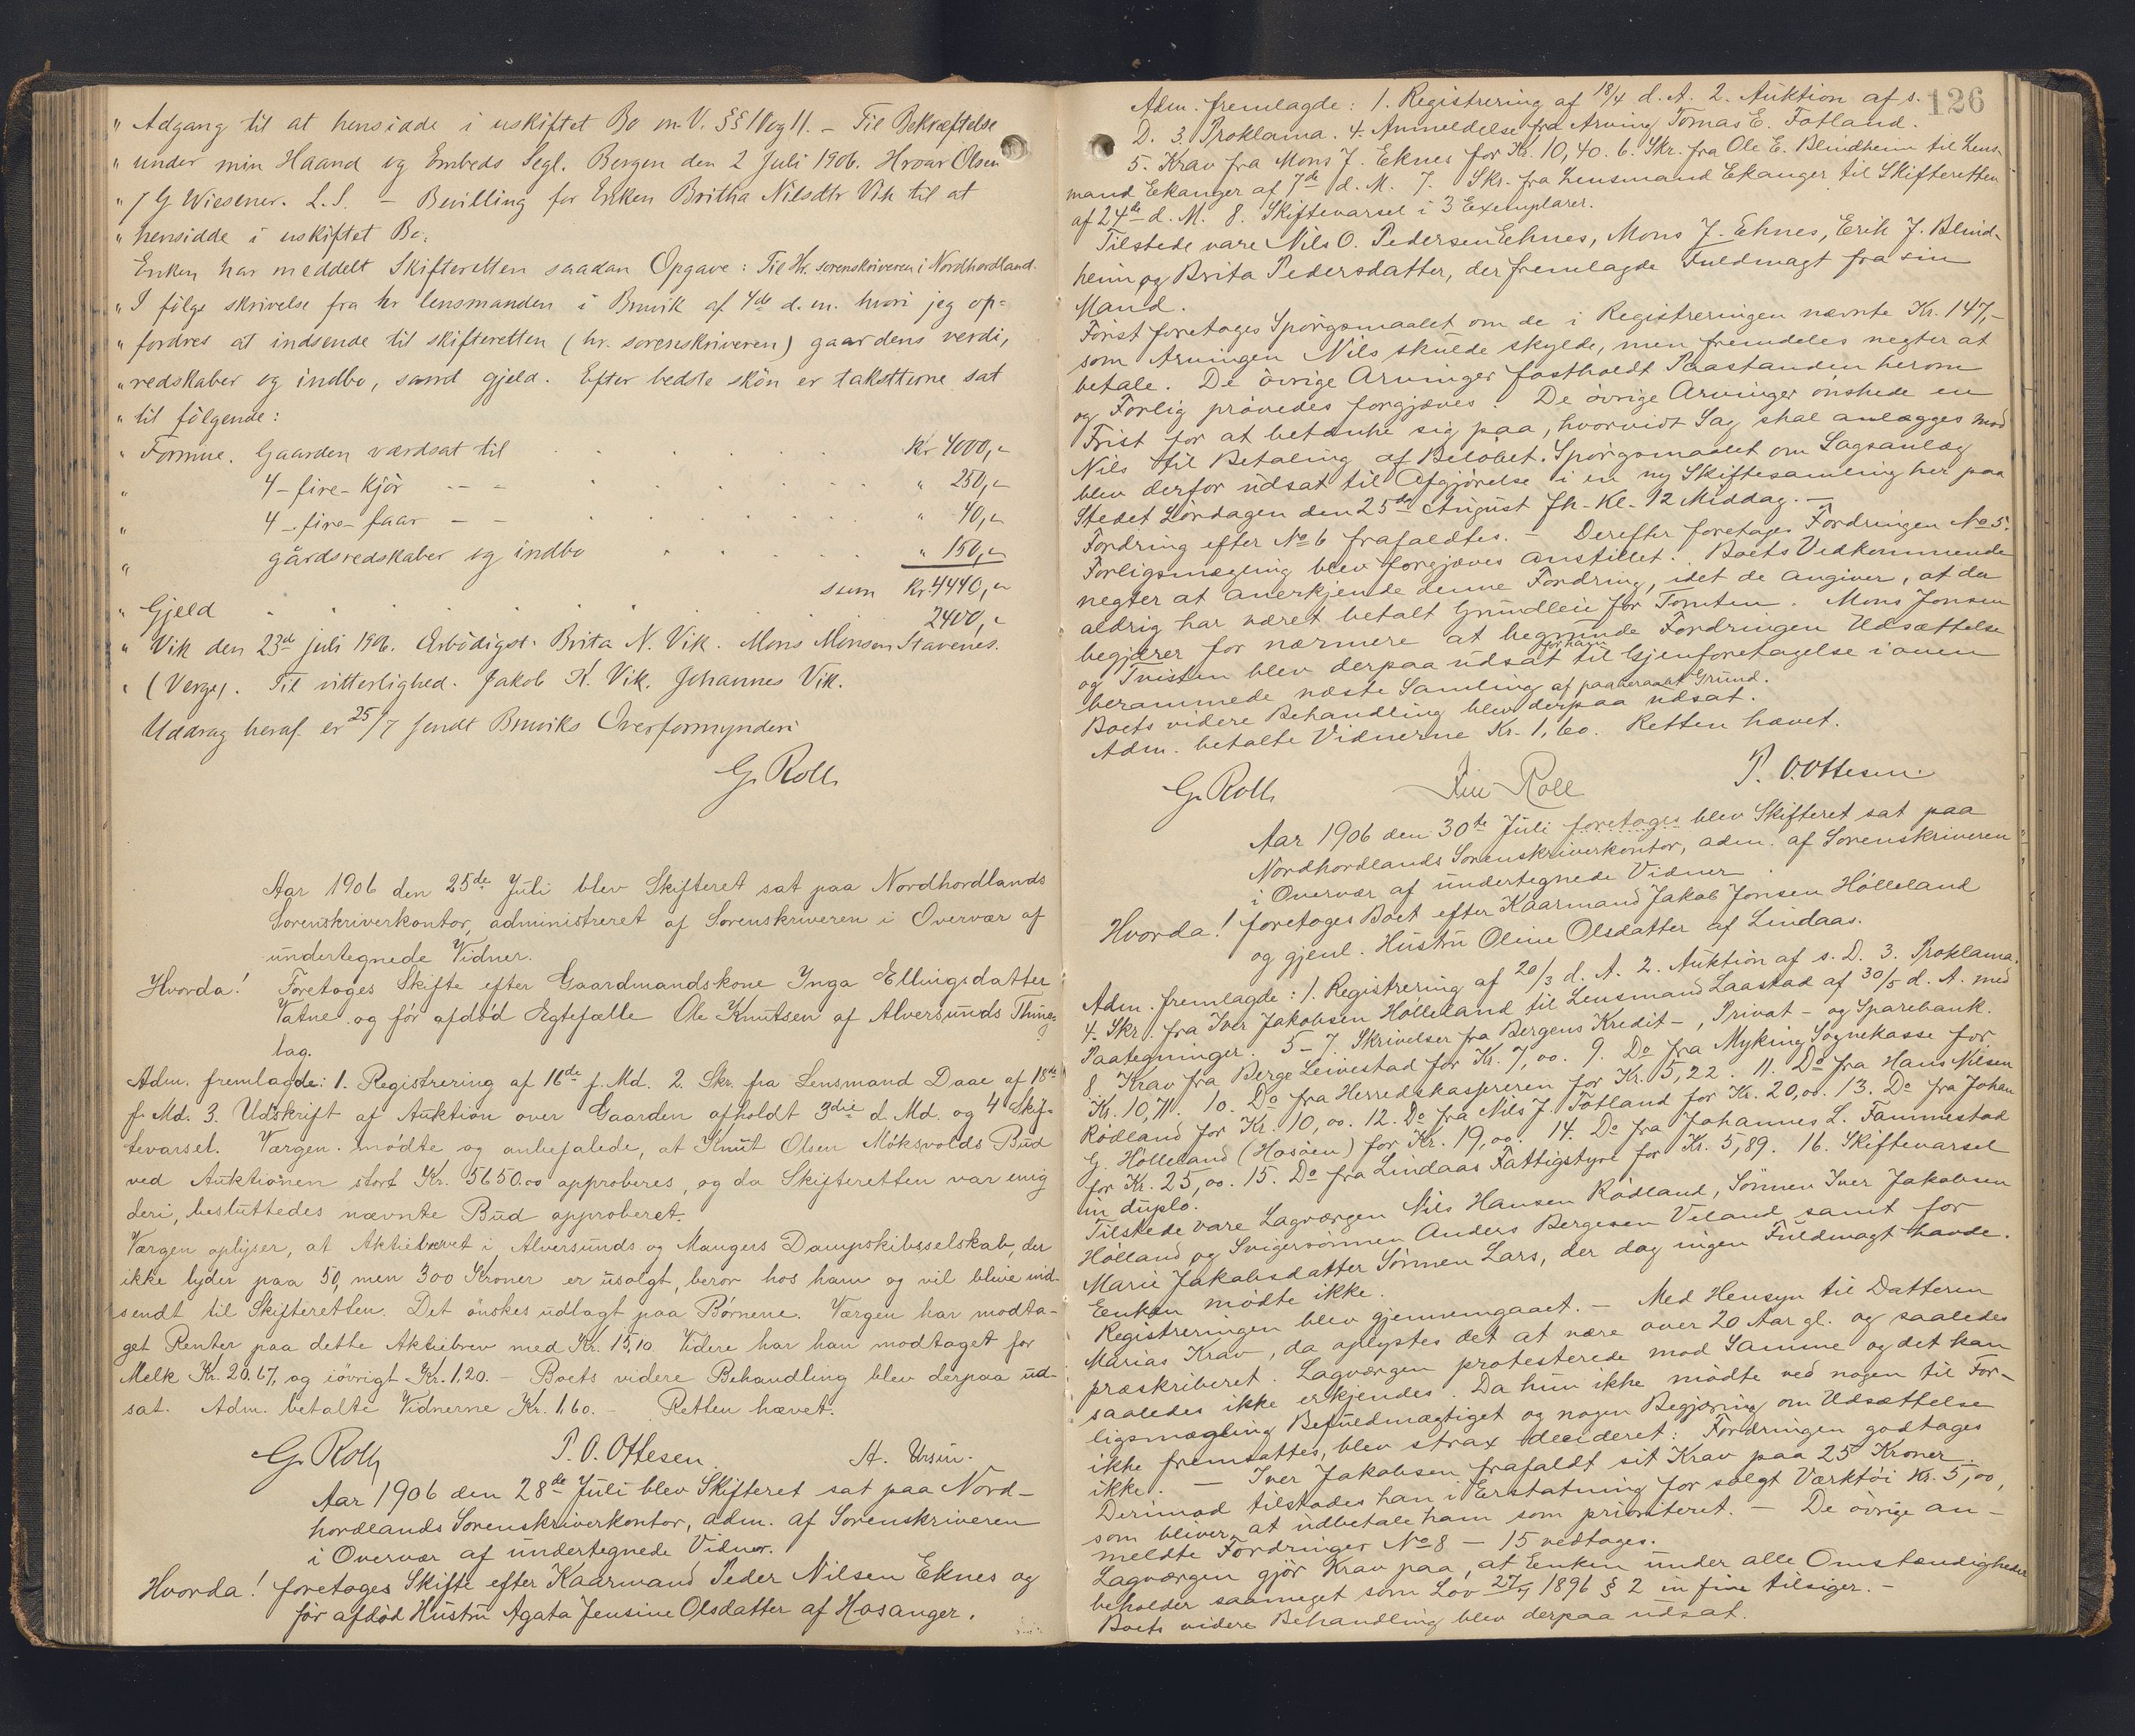 " Adgang til at hensidde i uskiftet Bo m. V. §§ 10 og 11. – Til Bekræftelse
" under min Haand og Embeds Segl. Bergen den 2 Juli 1906. Hroar Olsen
" / G Wiesener. L. S. – Bevilling for Enken Britha Nilsdtr Vik til at
" hensidde i uskiftet Bo.
Enken har meddelt Skifteretten saadan Opgave: Til Hr. sorenskriveren i Nordhordland.
" I følge skrivelse fra hr lensmanden i Bruvik af 4de d. m. hvori jeg op=
" fordres at indsende til skifteretten (hr. sorenskriveren) gaardens verdi,
" redskaber og indbo, samt gjeld. Efter bedste skön er taksterne sat
" til fölgende:
" Formue. Gaarden værdsat til kr 4000,-
" 4 – fire – Kjör – – – " 250,-
" 4 – fire – faar – – " 40,-
" gårdsredskaber og indbo " 150,-
sum kr. 4440,-
" Gjeld 2400,-
" Vik den 23de juli 1906. Ærbödigst. Brita N. Vik. Mons Monsen Stavenes.
" (Verge). Til vitterlighed. Jakob K. Vik. Johannes Vik.
Uddrag heraf er 25/7 sendt Bruviks Overformynderi
G. Roll
Aar 1906 den 25de Juli blev Skifteret sat paa Nordhordlands
Sorenskriverkontor, administreret af Sorenskriveren i Overvær af
undertegnede Vidner.
Hvorda! Foretages Skifte efter Gaardmandskone Inga Ellingsdatter
Vatne og før afdød Egtefælle Ole Knutsen af Alversunds Thing=
lag.
Adm. fremlagde: 1. Registrering af 16de f. Md. 2. Skr. fra Lensmand Daae af 18de
f. Md. 3. Udskrift af Auktion over Gaarden afholdt 3die d. Md. og 4 Skif-
tevarsel. Værgen mødte og anbefalede, at Knut Olsen Möksvolds Bud
ved Auktionen stort Kr. 5650.00 approberes, og da Skifteretten var enig
deri, besluttedes nævnte Bud approberet.
Værgen oplyser, at Aktiebrevet i Alversunds og Mangers Dampskibsselskab, der
ikke lyder paa 50, men 300 Kroner er usolgt, beror hos ham og vil blive ind-
sendt til Skifteretten. Det önskes udlagt paa Børnene. Værgen har modta-
get Renter paa dette Aktiebrev med Kr. 15,10. Videre har han modtaget for
Melk Kr. 20.67, og iövrigt Kr. 1.20. – Boets videre Behandling blev derpaa ud-
sat. Adm. betalte Vidnerne Kr. 1,60. – Retten hævet.
G. Roll P. O. Ottesen. A. Ursin.
Aar 1906 den 28de Juli blev Skifteret sat paa Nord-
hordlands Sorenskriverkontor, adm. af Sorenskriveren
i Overvær af undertegnede Vidner.
Hvorda! foretages Skifte efter Kaarmand Peder Nilsen Eknes og
før afdöd Hustru Agata Jensine Olsdatter af Hosanger.
126
Adm. fremlagde: 1. Registrering af 18/4 d. A. 2. Auktion af s.
D. 3. Proklama. 4. Anmeldelse fra Arving Tomas E. Fotland.
5. Krav fra Mons J. Eknes for Kr. 10,40. 6. Skr. fra Ole E. Blindheim til Lens-
mand Eekanger af 7de d. M. 7. Skr. fra Lensmand Ekanger til Skifteretten
af 24de d. M. 8. Skiftevarsel i 3 Exemplarer.
Tilstede vare Nils O. Pedersen Eknes, Mons J. Eknes, Erik J. Blind-
heim og Brita Pedersdatter, der fremlagde Fuldmagt fra sin
Mand.
Först foretages Spörgsmaalet om de i Registreringen nævnte Kr. 147,-
som Arvingen Nils skulde skylde, men fremdeles negter at
betale. De övrige Arvinger fastholdt Paastanden herom
og Forlig prövedes forgjæves. De övrige Arvinger önskede en
Frist for at betænke sig paa, hvorvidt Sag skal anlægges mod
Nils til Betaling af Belöbet. Spörgsmaalet om Sagsanlæg
blev derfor udsat til Afgjörelse i en ny Skiftesamling her paa
Stedet Lördagen den 25de August fk. Kl. 12 Middag. –
Fordring efter No 6 frafaldtes. – Derefter foretages Fordringen No 5.
Forligsmægling blev forgjæves anstillet. Boets Vedkommende
negter at anerkjende denne Fordring, idet de angiver, at der
aldrig har været betalt Grundleie for Tomten. Mons Jonsen
begjærer for nærmere at begrunde Fordringen Udsættelse
og Tvisten blev derpaa udsat til Gjenforetagelse i oven
for ham
berammede næste Samling af paaberaabt Grund.
Boets videre Behandling blev derpaa udsat.
Adm. betalte Vidnerne Kr. 1,60. Retten hævet.
G. Roll Roll P. O. Ottesen.
Aar 1906 den 30te Juli foretages blev Skifteret sat paa
Nordhordlands Sorenskriverkontor, adm. af Sorenskriveren
i Overvær af undertegnede Vidner.
Hvorda! foretages Boet efter Kaarmand Jakob Jonsen Hölleland
og gjenl. Hustru Oline Olsdatter af Lindaas.
Adm. fremlagde: 1. Registrering af 20/3 d. A. 2. Auktion af s. D. 3. Proklama.
4. Skr. fra Iver Jakobsen Hölleland til Lensmand Laastad af 30/5 d. A. med
Paategninger. 5–7. Skrivelser fra Bergens Kredit-, Privat- og Sparebank.
8. Krav fra Berge Leivestad for Kr. 7,00. 9. Do fra Myking Sognekasse for
Kr. 10,71. 10. Do fra Herredskassereren for Kr. 5,22. 11. Do fra Hans Nilsen
Rödland for Kr. 10,00. 12. Do fra Nils J. Fotland for Kr. 20,00. 13. Do fra Johan
G. Hölleland (Hosöen) for Kr. 19,00. 14. Do fra Johannes L. Fammestad
for Kr. 25,00. 15. Do fra Lindaas Fattigstyre for Kr. 5,89. 16. Skiftevarsel
in duplo.
Tilstede vare Lagværgen Nils Hansen Rödland, Sönnen Iver Jakobsen
Hölland og Svigersönnen Anders Bergesen Veland samt for
Marie Jakobsdatter Sönnen Lars, der dog ingen Fuldmagt havde.
Enken mödte ikke.
Registreringen blev gjennemgaaet. – Med Hensyn til Datteren
Marias Krav, da oplystes det at være over 20 Aar gl. og saaledes
præskriberet. Lagværgen protesterede mod Samme og det kan
saaledes ikke erkjendes. Da hun ikke mödte ved nogen til For-
ligsmægling Befuldmægtiget og nogen Begjæring om Udsættelse
ikke fremsattes, blev strax decideret: Fordringen godtages
ikke. – Iver Jakobsen frafaldt sit Krav paa 25 Kroner.
Derimod tilstodes han i Erstatning for solgt Værktöi Kr. 5,00,
som bliver at udbetale ham som prioriteret. – De övrige an-
meldte Fordringer No 8 – 15 vedtages.
Lagværgen gjör Krav paa, at Enken under alle Omstændigheder
beholder saameget som Lov 27/ 1896 § 2 in fine tilsiger. –
Boets videre Behandling blev derpaa udsat.